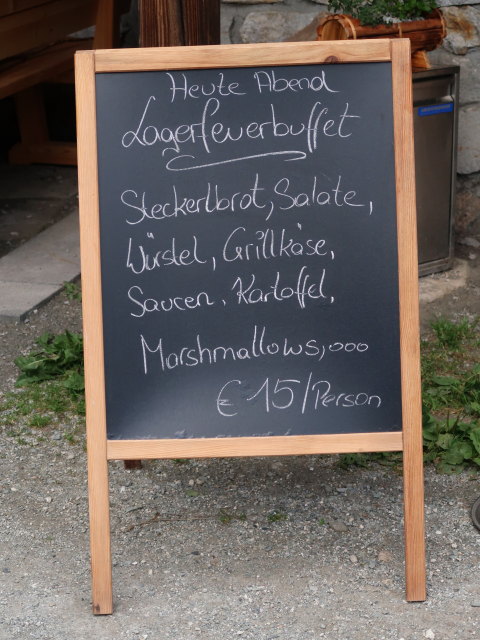 Heute Abend
Lagerfeuerbuffet
Steckerlbrot, Salate,
Würstel, Grillkäse,
Saucen, Kartoffel,
Marshmallows,...
€ 15/Person